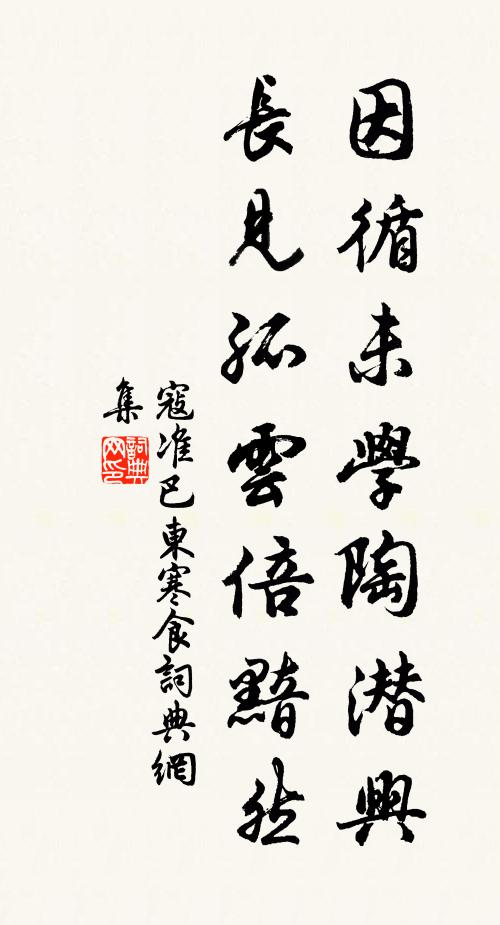 因循未學陶潛興
長見孤雲倍黯然
寇准巴東寒食詞典網
集
詞典網印